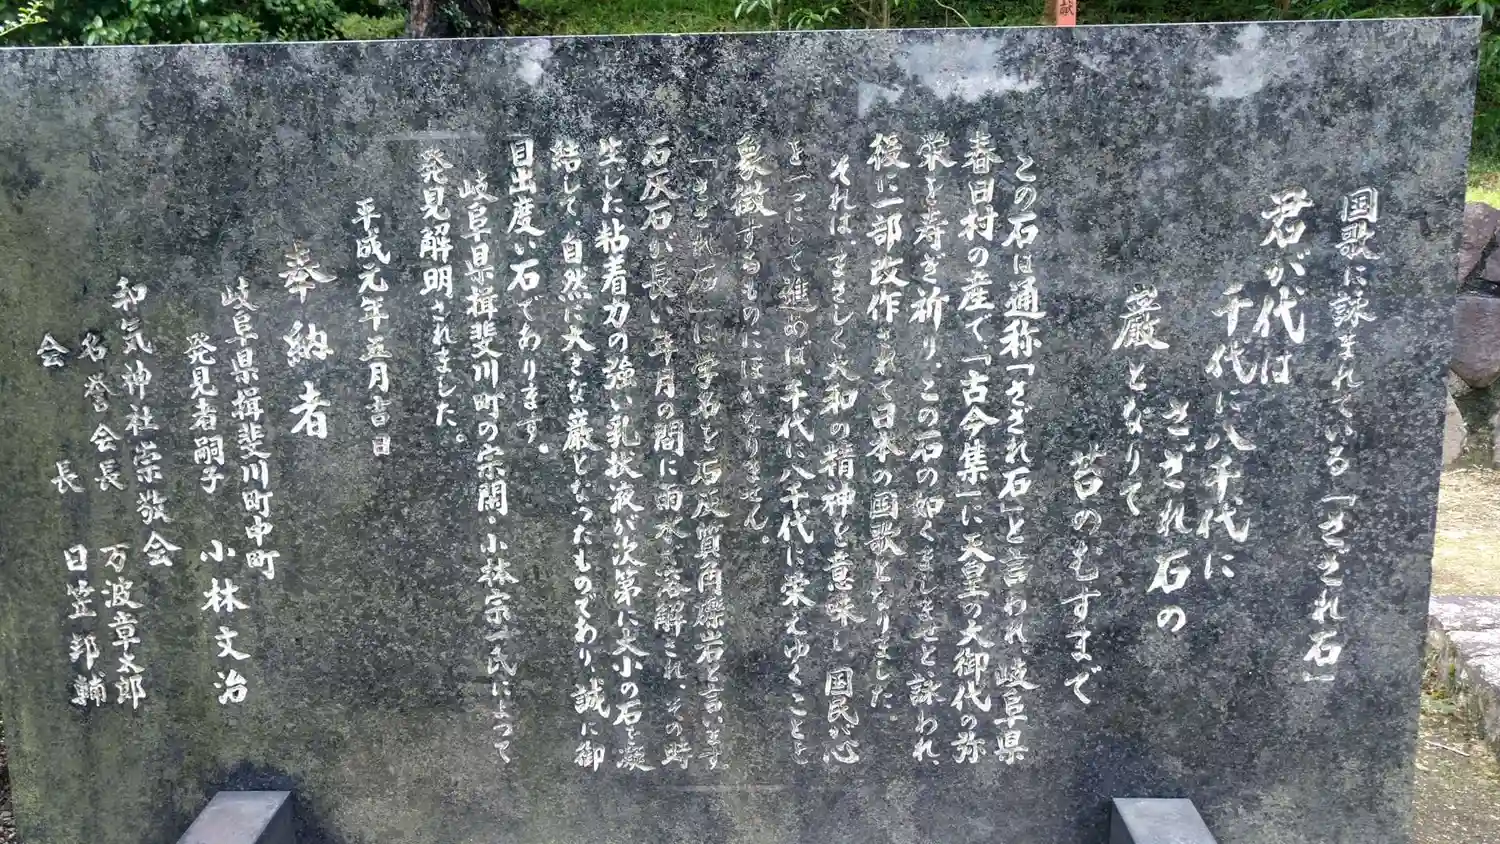 国歌に詠まれている「さざれ石」
君が代は
千代に八千代に
さざれ石の
巌となりて
苔のむすまで
この石は通称「さざれ石」と言われ、岐阜県
春日村の産で、「古今集」に天皇の大御代の弥
栄を寿ぎ祈り、この石の如くましませと、詠われ、
後に一部改作されて日本の国歌となりました。
それは、まさしく大和の精神を意味し国民が心
を一つにして進めば、千代に八千代に栄えゆくことを
象徴するものにほかなりません。
「さざれ石」は学名を石灰質角礫岩と言います
石灰石が長い年月の間に雨水で溶解され、その時
生した粘着力の強い乳状液が次第に大小の石を凝
結して、自然に大きな巌となったものであり、誠に御
目出度い石であります。
岐阜県揖斐川町の宗開・小林宗一氏によって
発見解明されました。
平成元年五月吉日
奉納者
岐阜県揖斐川町中町
発見者嗣子 小林文治
和気神社崇敬会
名誉会長 万波章太郎
会長 日笠邦輔